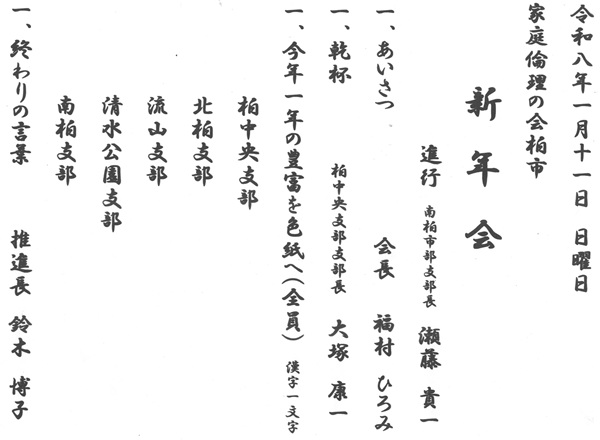 令和八年一月十一日 日曜日
家庭倫理の会柏市
新年会
進行 南柏市部支部長 瀬藤 貴一
一、あいさつ 会長 福村 ひろみ
一、乾杯 柏中央支部支部長 大塚 康一
一、今年一年の豊富を色紙へ(全員) 漢字一文字
柏中央支部
北柏支部
流山支部
清水公園支部
南柏支部
一、終わりの言葉 推進長 鈴木 博子